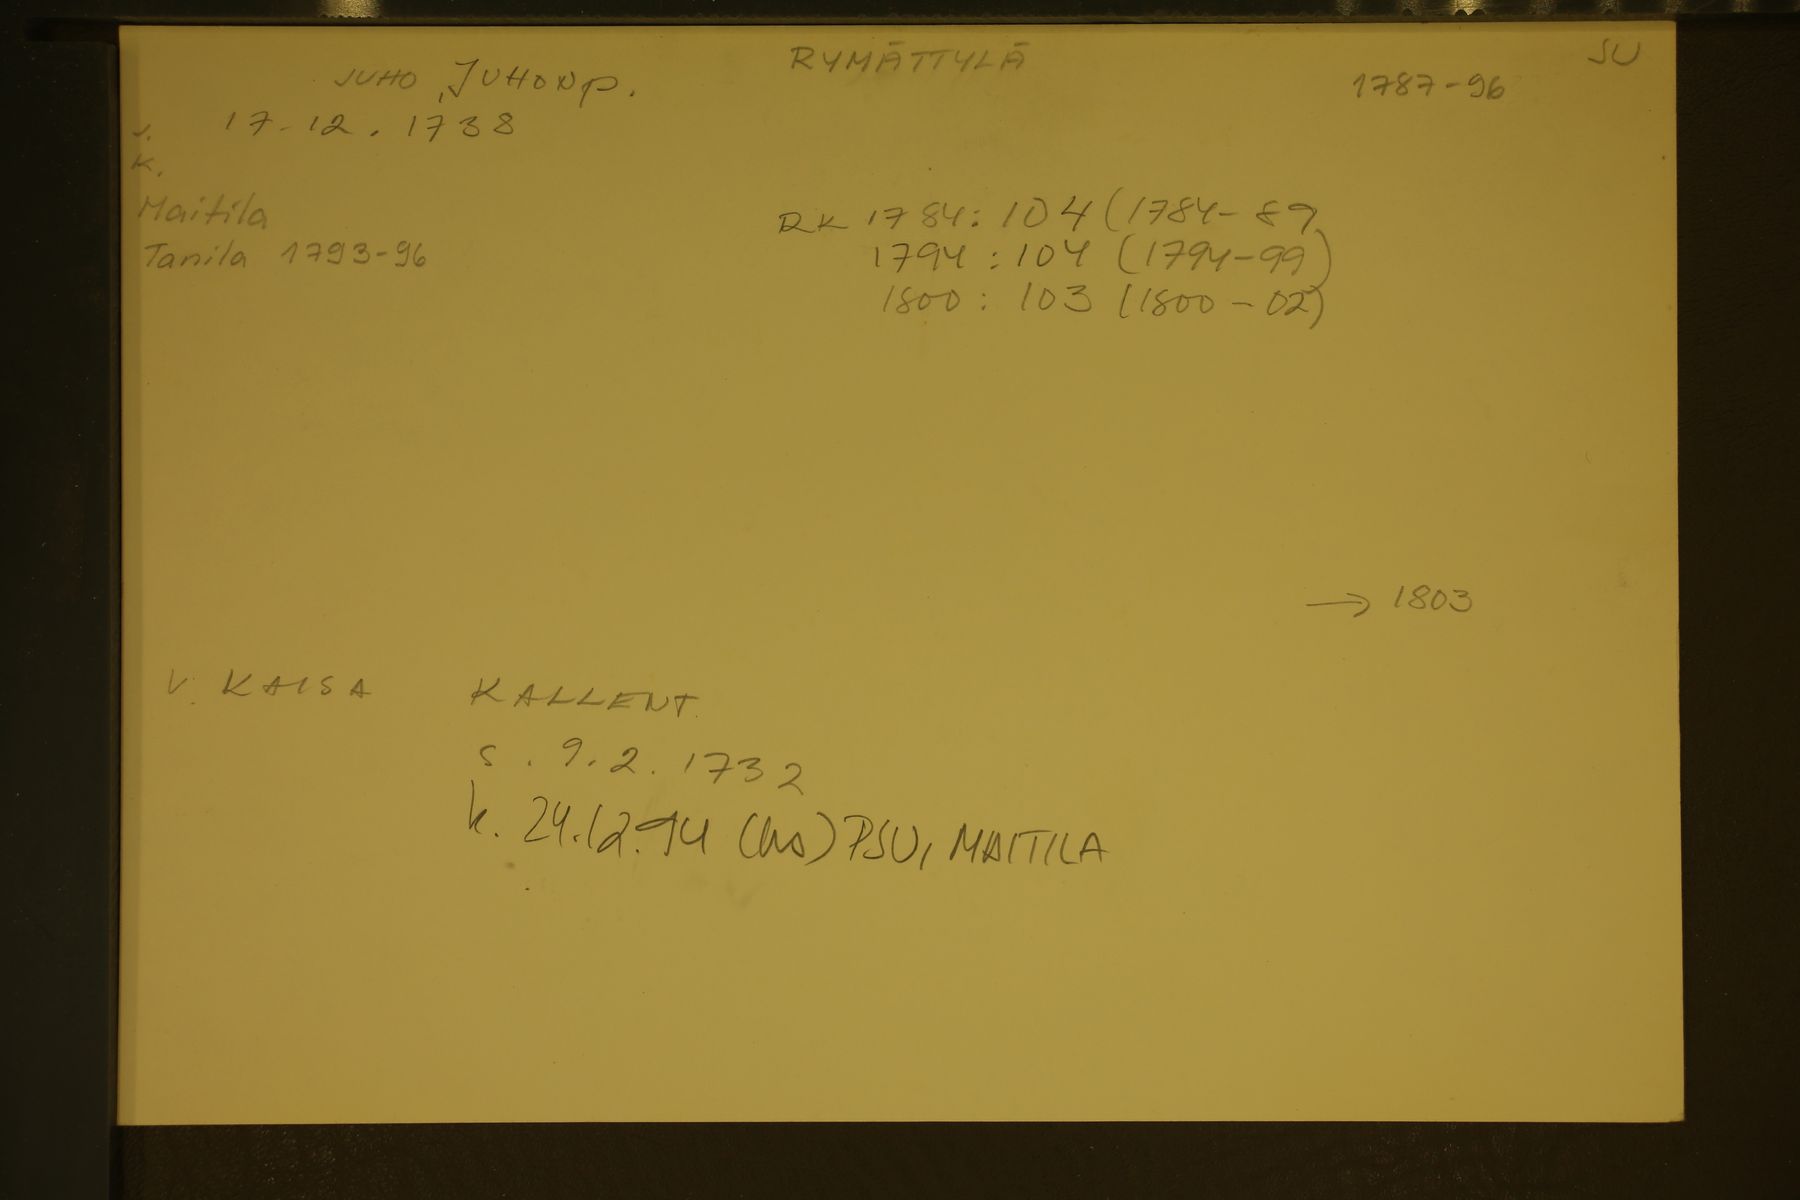 JUHO, JUHONP.
RYMÄTTYLÄ
SU
1787-96
s. 17-12. 1738
k.
Maitila
Tanila 1793-96
RK 1784: 104 (1784-89
1794: 104 (1794-99)
1800: 103 (1800-02)
→ 1803
V. KAISA KALLENT.
s. 9.2. 1732
k. 24.12.94 (hs) PSU, MAITILA